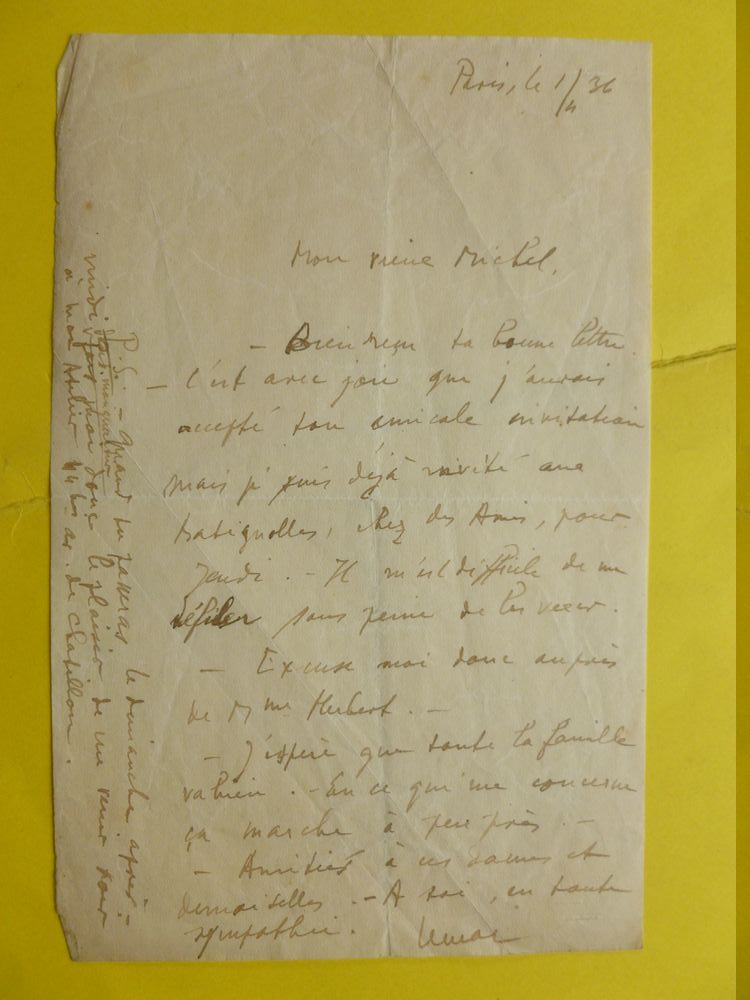 Paris, le 1/4 36
Mon vieux Michel,
- Bien reçu ta bonne lettre.
- C'est avec joie que j'aurais
accepté ton amicale invitation
mais je suis déjà invité aux
Batignolles, chez des Amis, pour
Jeudi. - Il m'est difficile de me
défiler sous peine de les vexer.
- Excuse moi donc auprès
de Mme Hubert. -
- J'espère que toute la famille
va bien. - En ce qui me concerne
ça marche à peu près. -
- Amitiés à ces dames et
demoiselles. - A toi, en toute
sympathie.
P.S. - Quand tu passeras le dimanche après-
midi dans mon quartier
fais moi donc le plaisir de me venir voir
à mon Atelier 44 bis av. de Chatillon.